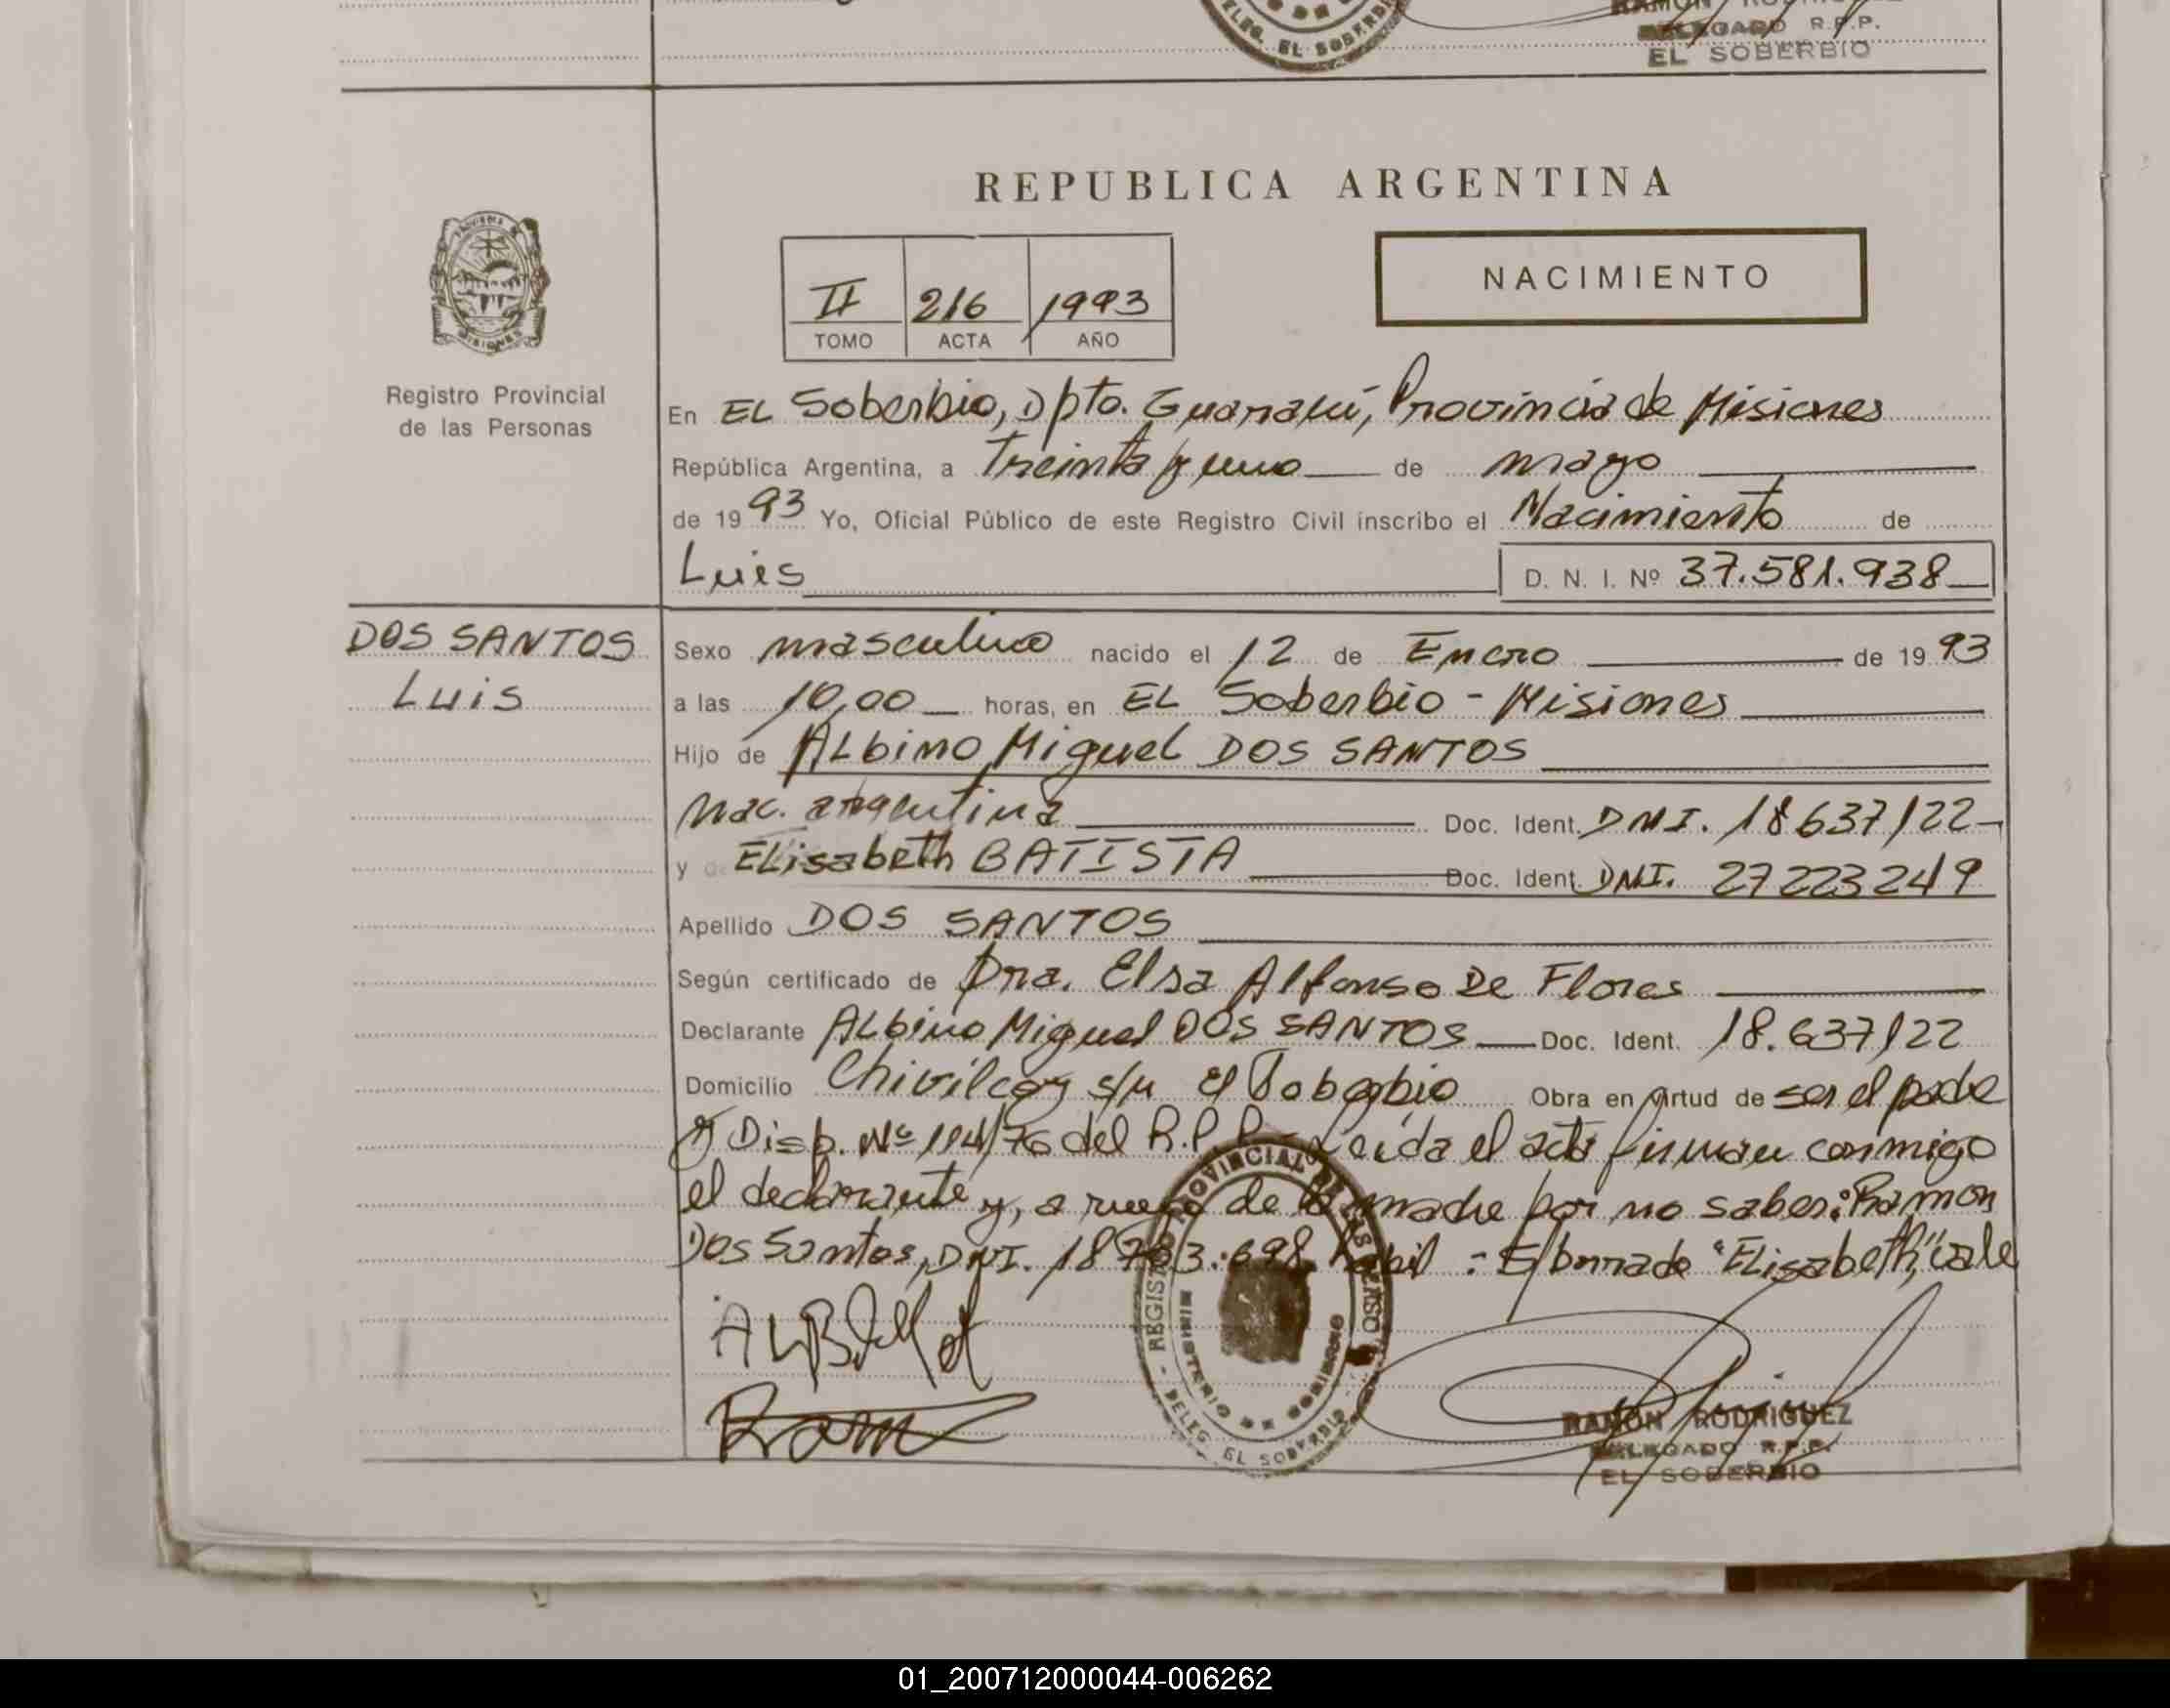 DELEG. EL SOBERBIO
RAMON RODRIGUEZ
DELEGADO R.P.P.
EL SOBERBIO
REPUBLICA ARGENTINA
PROVINCIA DE
MISIONES
II 216 1993
TOMO ACTA AÑO
NACIMIENTO
Registro Provincial
de las Personas
En EL Soberbio, Dpto. Guaraní, Provincia de Misiones
República Argentina, a Treinta y uno de mayo
de 1993 Yo, Oficial Público de este Registro Civil inscribo el Nacimiento de
Luis D. N. I. Nº 37.581.938
DOS SANTOS
Luis
Sexo masculino nacido el 12 de Enero de 1993
a las 10,00 horas, en EL Soberbio - Misiones
Hijo de ALbino Miguel DOS SANTOS
Nac. argentina Doc. Ident. DNI. 18637122
y de ELisabeth BATISTA Doc. Ident. DNI. 27223249
Apellido DOS SANTOS
Según certificado de Dra. Elsa Alfonso De Flores
Declarante ALbino Miguel DOS SANTOS Doc. Ident. 18.637122
Domicilio Chivilcoy s/n El Soberbio Obra en virtud de ser el padre
y Disp. Nº 114/76 del R.P.P. - Leída el acta firman conmigo
el declarante y, a ruego de la madre por no saber: Ramon
Dos Santos, DNI. 18.703.698 habil : E/borrado "ELisabeth", vale
REGISTRO PROVINCIAL DE LAS PERSONAS
MINISTERIO DE GOBIERNO
DELEG. EL SOBERBIO
Ram
RAMON RODRIGUEZ
DELEGADO R.P.P.
EL SOBERBIO
01_200712000044-006262